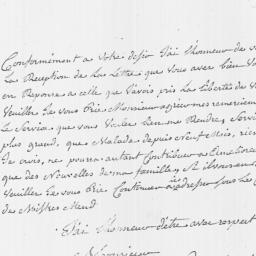 Conformément a votre desir J'ai l'honneur de v
La Reception de La Lettre que vous avez bien vo
en Reponse a celle que J'avois pris La Liberté de v
Veuillez Je vous Prie Monsieur agréer mes remerciem
Le Service que vous Voulez bien me Rendre, Servi
plus grand, que Malade depuis Neuf Mois, rien
Je crois, ne pourra autant Contribuer a
que des Nouvelles de ma famille,
Veuillez Je vous Prie Continuer a les adresser sous les
de Messrs
J'ai l'honneur d'être avec respect
Monsieur